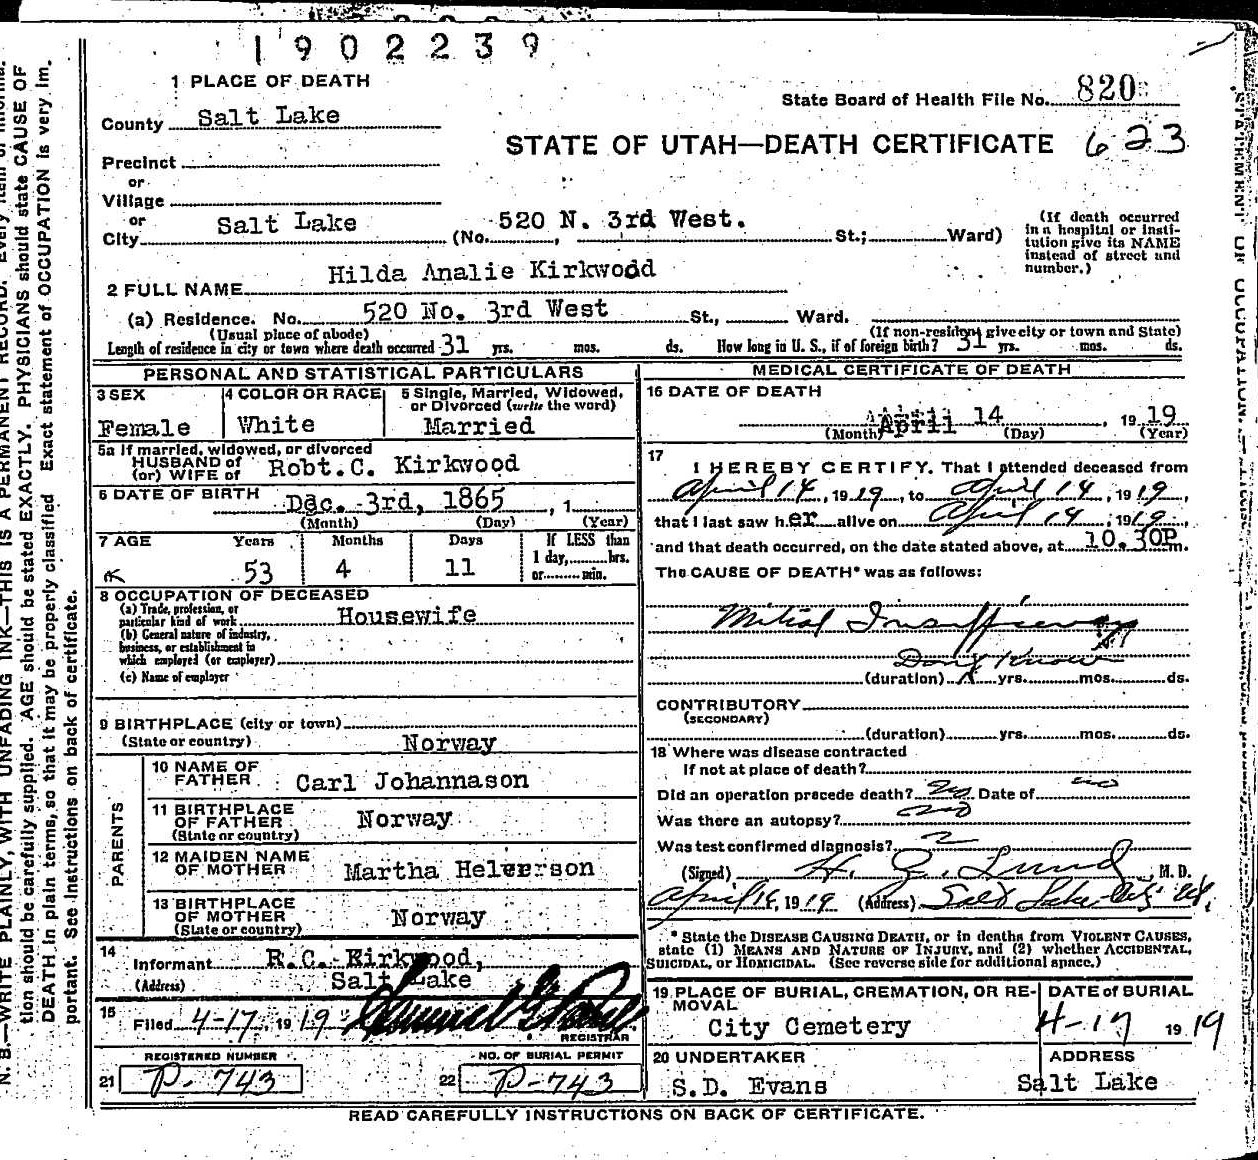 1902239
1 PLACE OF DEATH
State Board of Health File No. 820
County Salt Lake
STATE OF UTAH—DEATH CERTIFICATE 623
Precinct
or
Village
or
City Salt Lake (No. 520 N. 3rd West. St.; Ward)
(If death occurred in a hospital or institution give its NAME instead of street and number.)
2 FULL NAME Hilda Analie Kirkwood
(a) Residence. No. 520 No. 3rd West St., Ward.
(Usual place of abode) (If non-resident give city or town and State)
Length of residence in city or town where death occurred 31 yrs. mos. ds. How long in U. S., if of foreign birth? 31 yrs. mos. ds.
PERSONAL AND STATISTICAL PARTICULARS
3 SEX Female
4 COLOR OR RACE White
5 Single, Married, Widowed, or Divorced (write the word) Married
5a If married, widowed, or divorced
HUSBAND of
(or) WIFE of Robt. C. Kirkwood
6 DATE OF BIRTH Dec. 3rd, 1865 , 1
(Month) (Day) (Year)
7 AGE Years Months Days If LESS than
1 day, hrs.
53 4 11 or min.
8 OCCUPATION OF DECEASED
(a) Trade, profession, or
particular kind of work Housewife
(b) General nature of industry,
business, or establishment in
which employed (or employer)
(c) Name of employer
9 BIRTHPLACE (city or town)
(State or country) Norway
PARENTS
10 NAME OF FATHER Carl Johannason
11 BIRTHPLACE OF FATHER (State or country) Norway
12 MAIDEN NAME OF MOTHER Martha
13 BIRTHPLACE OF MOTHER (State or country) Norway
14 Informant R.C. Kirkwood,
(Address) Salt Lake
15 Filed 4-17 1919 Samuel G.
REGISTRAR
REGISTERED NUMBER NO. OF BURIAL PERMIT
21 P-743 22 P-743
MEDICAL CERTIFICATE OF DEATH
16 DATE OF DEATH
April 14, 1919
(Month) (Day) (Year)
17 I HEREBY CERTIFY. That I attended deceased from
April 14, 1919, to April 14, 1919,
that I last saw her alive on April 14, 1919,
and that death occurred, on the date stated above, at 10.30P m.
The CAUSE OF DEATH* was as follows:
Mitral Insufficiency
Dont Know
(duration) yrs. mos. ds.
CONTRIBUTORY
(SECONDARY)
(duration) yrs. mos. ds.
18 Where was disease contracted
If not at place of death?
Did an operation precede death? no Date of no
Was there an autopsy? no
Was test confirmed diagnosis?
(Signed) H. G. Lund, M. D.
April 16, 1919 (Address) Salt Lake City Ut.
* State the DISEASE CAUSING DEATH, or in deaths from VIOLENT CAUSES,
state (1) MEANS AND NATURE OF INJURY, and (2) whether ACCIDENTAL,
SUICIDAL, or HOMICIDAL. (See reverse side for additional space.)
19 PLACE OF BURIAL, CREMATION, OR REMOVAL DATE of BURIAL
City Cemetery 4-17 1919
20 UNDERTAKER ADDRESS
S.D. Evans Salt Lake
READ CAREFULLY INSTRUCTIONS ON BACK OF CERTIFICATE.
N. B.—WRITE PLAINLY, WITH UNFADING INK—THIS IS A PERMANENT RECORD. Every item of informa-
tion should be carefully supplied. AGE should be stated EXACTLY. PHYSICIANS should state CAUSE OF
DEATH in plain terms, so that it may be properly classified Exact statement of OCCUPATION is very im-
portant. See instructions on back of certificate.
OF OCCUPATION